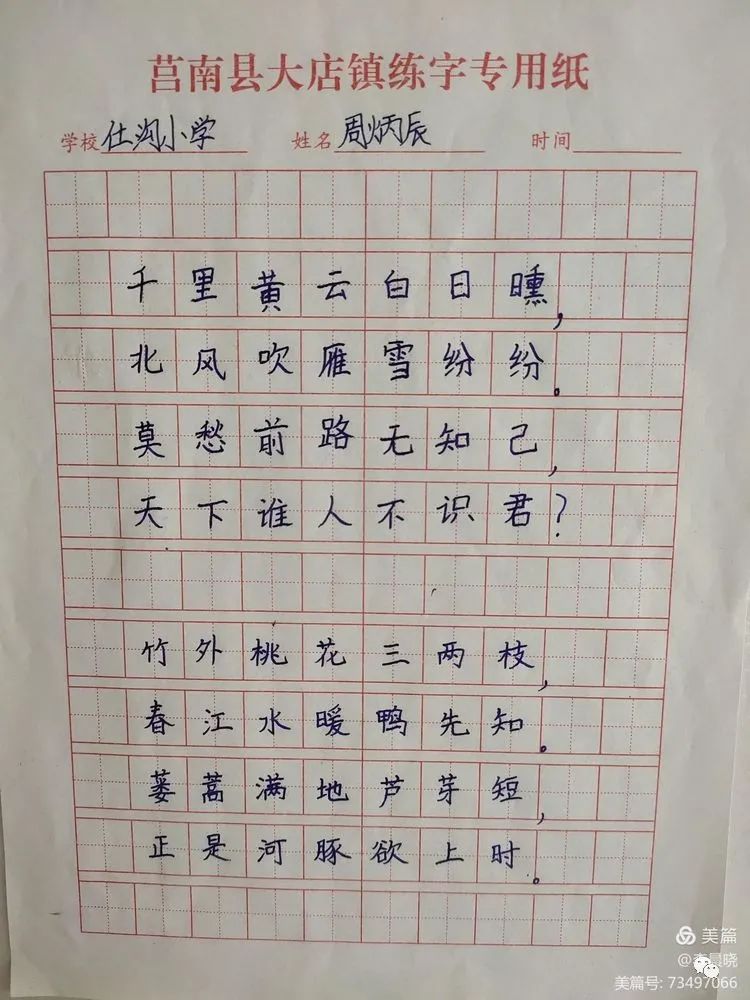 莒南县大店镇练字专用纸
学校 仕沟小学 姓名 周炳辰 时间
千里黄云白日曛,
北风吹雁雪纷纷。
莫愁前路无知己,
天下谁人不识君?
竹外桃花三两枝,
春江水暖鸭先知。
蒌蒿满地芦芽短,
正是河豚欲上时。
美篇
@李晨晓
美篇号: 73497066